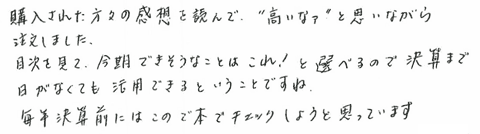 購入された方々の感想を読んで、"高いなァ"と思いながら
注文しました。
目次を見て、今期できそうなことはこれ！と選べるので決算まで
日がなくても活用できるということですね。
毎年決算前にはこので本でチェックしようと思っています